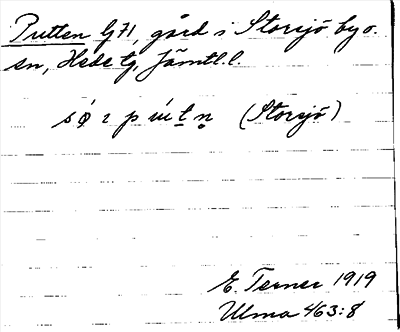 Putten Lj 71, gård i Storsjö by o.
sn, Hede tg, Jämtl.l.
sǿ ɿ p ú t n (Storsjö)
E. Terner 1919
Ulma 463:8